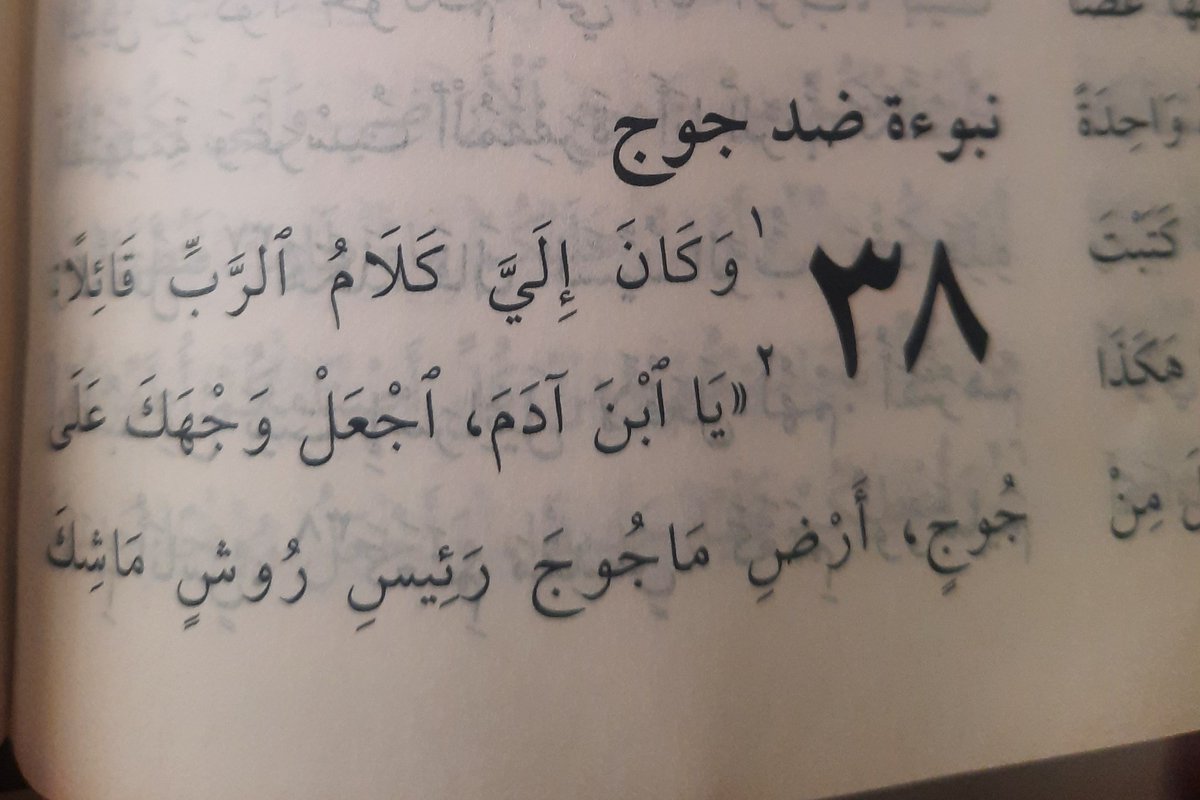 نبوءة ضد جوج
٣٨ ١ وَكَانَ إِلَيَّ كَلَامُ ٱلرَّبِّ قَائِلًا:
٢ «يَا ٱبْنَ آدَمَ، ٱجْعَلْ وَجْهَكَ عَلَى
جُوجٍ، أَرْضِ مَاجُوجَ رَئِيسِ رُوشٍ مَاشِكَ
وَاحِدَةً
كَتَبْتَ
هَكَذَا
مِنْ